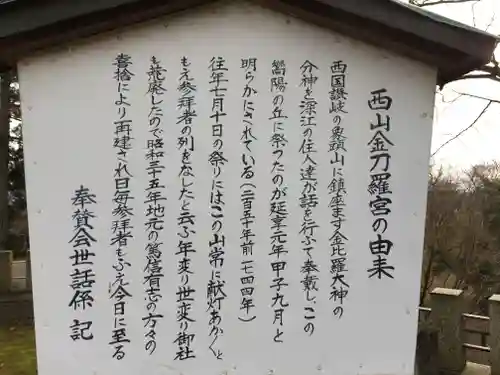 西山金刀羅宮の由来
西国讃岐の象頭山に鎮座ます金比羅大神の
分神を深江の住人達が話を行ふて奉戴し、この
嵩陽の丘に祭つたのが延享元年甲子九月と
明らかにされている（二百五十年前一七四四年）
往年七月十日の祭りにはこの山常に献灯あかくと
もえ参拜者の列をなしたと云ふ年変り世変り御社
も荒廃したので昭和三十五年地元の篤信有志の方々の
喜捨により再建され日毎参拜者もふえ今日に至る
奉賛会世話係 記